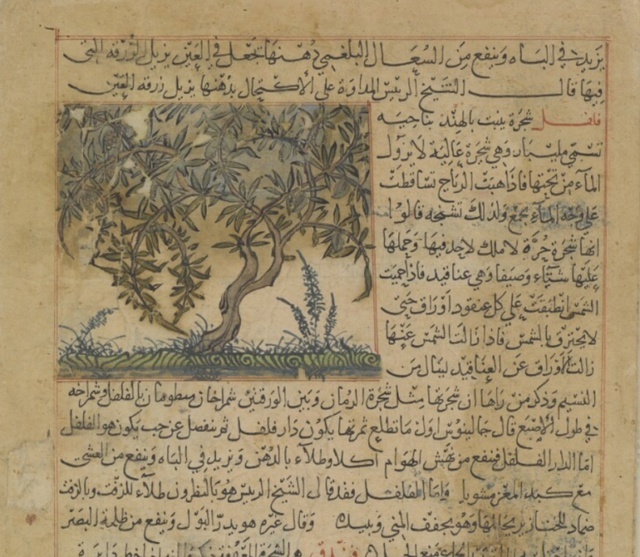 يزيد في الباه وينفع من السعال البلغمي دهنها تجعل في العين يزيل الزرقه التي
فيها قال الشيخ الرييس المداوة على الاكتحال بدهنها يزيل زرقه العين
فلفل شجرة ينبت بالهند بناحيه
تسمى مليبار وهي شجرة عاليه لا يزول
المآء من تحتها فاذا هبت الرياح تساقطت
على وجه المآء يجمع ولذلك تشنجه قالوا
انها شجرة حرة لا ملك لاحد فيها وحملها
عليها شتآء وصيفا وهي عناقيد فاذا حميت
الشمس انطبقت على كل عنقود اوراق حتى
لا يحترق بالشمس فاذا زالت الشمس عنها
زالت الاوراق عن العناقيد لينال من
النسيم وذكر من راها ان شجرتها مثل شجرة الرمان وبين الورقتين شمراخان منظومان بالفلفل وشمراخه
في طول الاصبع قال جالينوس اول ما تطلع ثمرتها يكون دار فلفل ثم ينفصل عن حب يكون هو الفلفل
اما الدار الفلفل فينفع من نهش الهوام اكلا وطلاء بالدهن ويزيد في الباه وينفع من العشى
مع كبد المعز مشويا واما الفلفل فقد قال الشيخ الرييس هو بالنطرون طلآء للبهق وبالزفت
ضماد للخنازير يحللها وهو يجفف المني وقال غيره هو يدر البول وينفع من ظلمة البصر